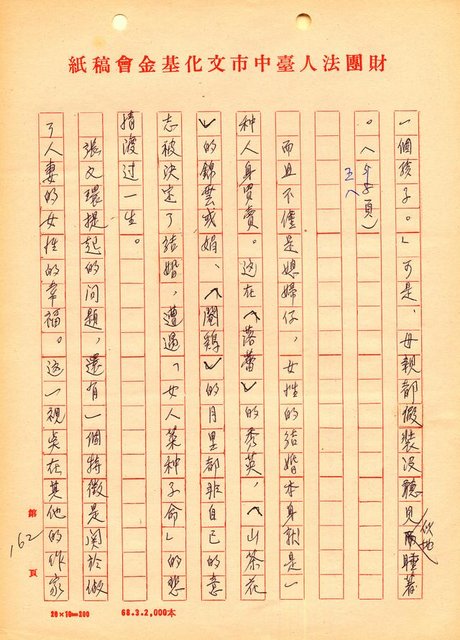 財團法人臺中市文化基金會稿紙
一個孩子。」可是，母親都假裝没聽見似地睡著
。（五八頁）
而且不僅是媳婦仔，女性的結婚本身就是一
种人身買賣。这在︿落蕾﹀的秀英，︿山茶花
﹀的錦雲或娟、︿閹鷄﹀的月里都非自己的意
志被決定了結婚，遭遇「女人菜种子命」的悲
情渡过一生。
張文環提起的问題，還有一個特徵是関於做
了人妻的女性的幸福。这一視点在其他的作家
第 162 頁
20×10=200 68.3.2,000本